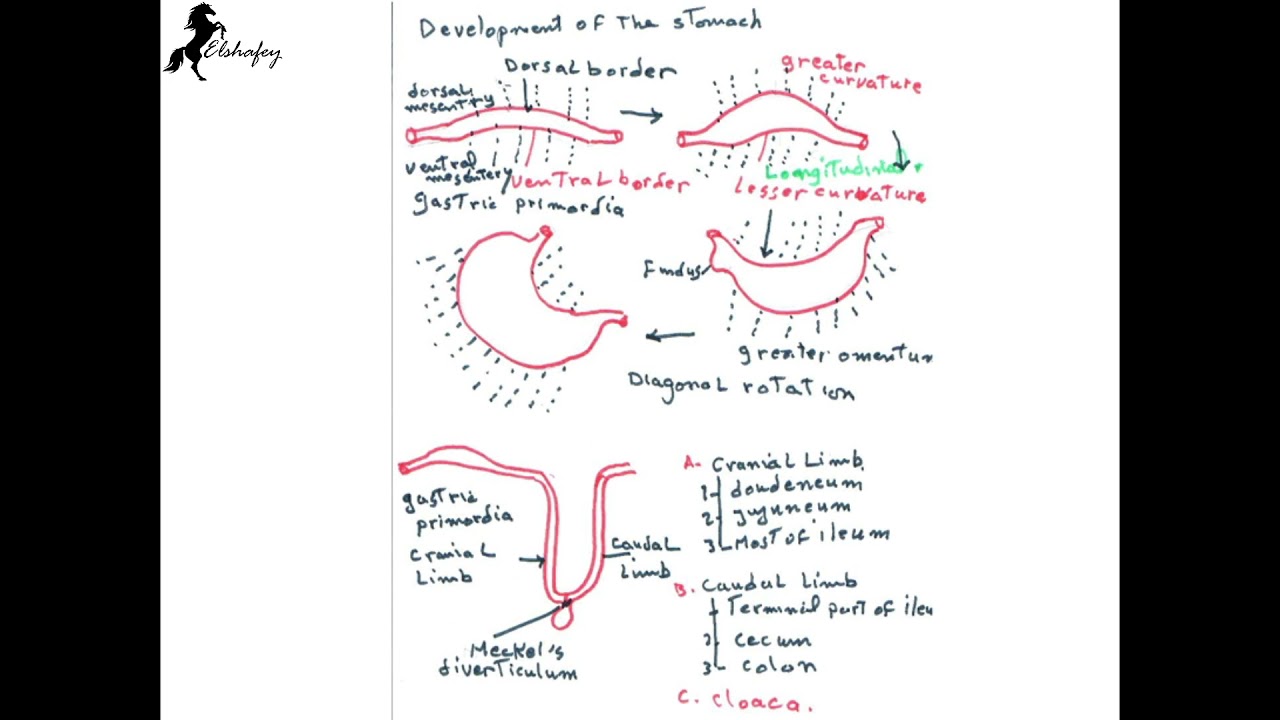 Elshafey
Development of The sTomach
Dorsal border
greater
curvature
dorsal
mesentry
ventral
mesentery
VenTral border
gasTric primordia
Loongitudinal
Lesser curvature
Fundus
greater omentum
Diagonal rotation
gasTric
primordia
Cranial
Limb
Caudal
Limb
Meckel's
diverticulum
A- Cranial Limb.
1- doudeneum
2- jujuneum
3- Most of ileum
B. Caudal Limb
1 Terminal part of ileu
2 cecum
3- colon
C. cloaca.